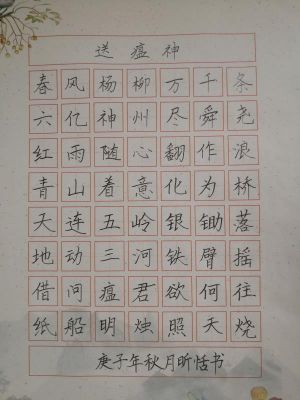 送瘟神
春风杨柳万千条
六亿神州尽舜尧
红雨随心翻作浪
青山着意化为桥
天连五岭银锄落
地动三河铁臂摇
借问瘟君欲何往
纸船明烛照天烧
庚子年秋月昕恬书